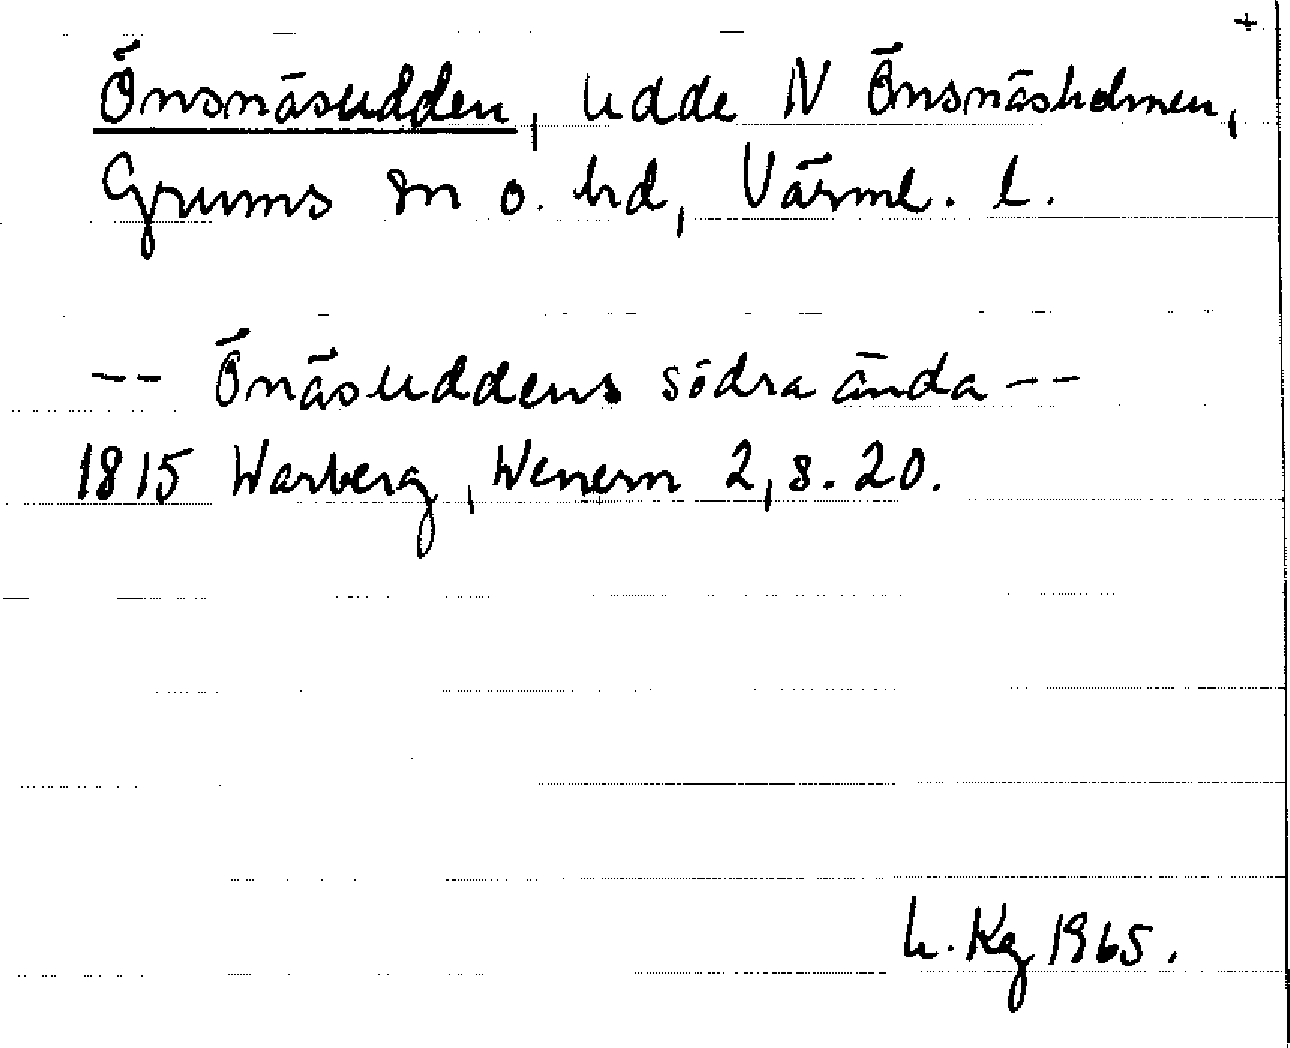 +
Önsnäsudden, udde N Önsnäsholmen,
Grums sn o. hd, Värml. l.
-- Önäsuddens södra ända --
1815 Warberg, Wenern 2, s. 20.
L. Kg 1965.